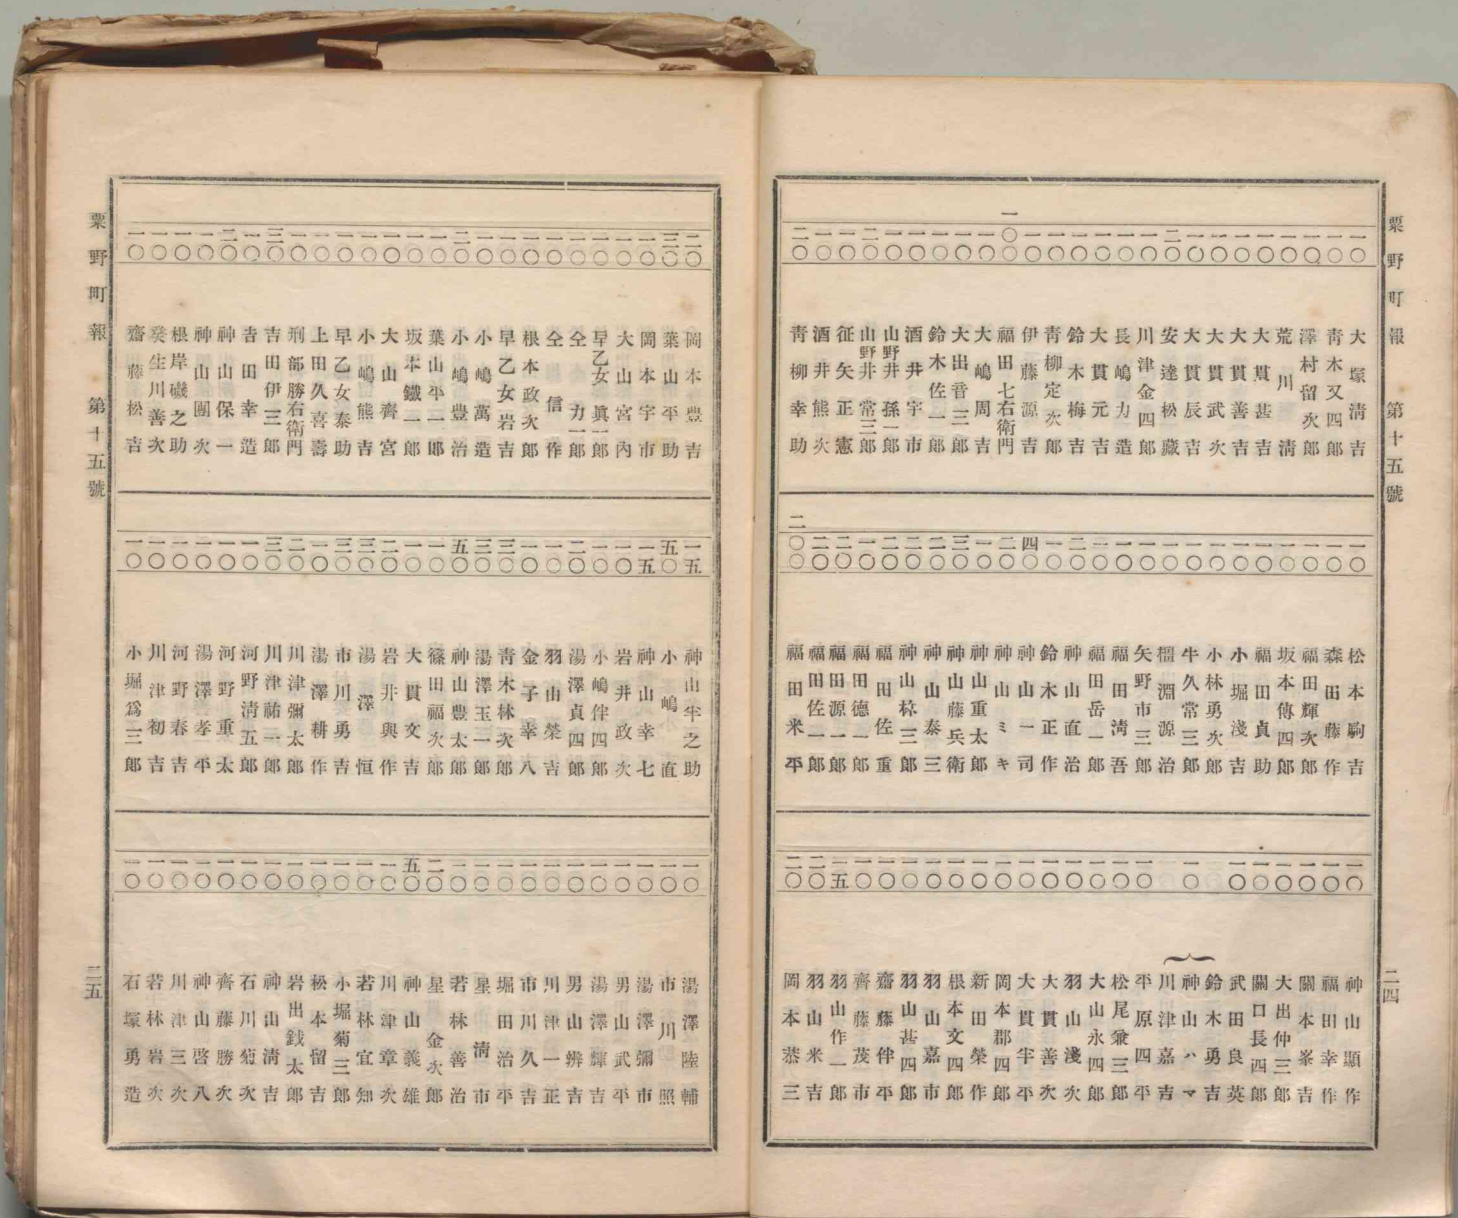 粟野町報 第十五號 二四
一〇 大塚清吉
一〇 青木又四郎
一〇 澤村留次郎
一〇 荒川清
一〇 大貫甚吉
一〇 大貫善吉
一〇 大貫武次
一〇 大貫辰吉
二〇 安達松藏
一〇 川津金四郎
一〇 長嶋力造
一〇 大貫元吉
一〇 鈴木梅吉
一〇 青柳定次郎
一〇 伊藤源吉
一〇〇 福田七右衛門
一〇 大嶋周吉
一〇 大出音二郎
一〇 鈴木佐一郎
一〇 酒井宇市
一〇 山野井孫一郎
二〇 山野井常三郎
一〇 征矢正憲
一〇 酒井熊次
二〇 青柳幸助
一〇 松本駒吉
一〇 森田藤作
一〇 福田輝次郎
一〇 坂本傳四郎
一〇 福田貞助
一〇 小堀淺吉
一〇 小林勇次郎
一〇 牛久常三郎
一〇 淵源治
一〇 矢野市三郎
一〇 福田清吾
一〇 福田岳一郎
二〇 神山直治
一〇 鈴木正作
四〇 神山一司
二〇 神山ミキ
一〇 神山重太郎
三〇 神山藤兵衛
二〇 神山泰三
二〇 神山林三郎
二〇 福田佐重
一〇 福田德一郎
二〇 福田源一郎
二〇 福田佐一郎
二〇〇 福田米平
一〇 神山顯作
一〇 福田幸作
一〇 關本峯吉
一〇 大出仲三郎
一〇 關口長四郎
一〇 武田良英
鈴木勇吉
一〇 神山ハマ
川津嘉吉
一〇 平原四平
一〇 松尾兼三郎
一〇 大山永四郎
一〇 羽山淺次
一〇 大貫善次
一〇 大貫半平
一〇 岡本郡四郎
一〇 新田榮作
一〇 根本文四郎
一〇 羽山嘉市
一〇 羽山甚四郎
一〇 齋藤伴平
一〇 齊藤茂市
一五 羽山作一郎
二〇 羽山米吉
二〇 岡本恭三
二〇 岡本豊吉
三〇 葉山平助
一〇 岡本宇市
一〇 大山宮内
一〇 早乙女眞一郎
一〇 仝力一郎
一〇 仝信作
一〇 根本政次郎
一〇 早乙女岩吉
一〇 小嶋萬造
二〇 小嶋豊治
一〇 葉山平一郎
一〇 坂本鐵一郎
一〇 大山齊宮
一〇 小嶋熊吉
一〇 早乙女泰助
一〇 上田久喜壽
一〇 刑部勝右衛門
三〇 吉田伊三郎
一〇 吉田幸造
二〇 神山保一
一〇 神山團次
一〇 根岸磯之助
一〇 癸生川善次
一〇 齋藤松吉
一五 神山半之助
五〇 小嶋直
一五 神山幸七
一〇 岩井政次
一〇 小嶋伴四郎
二〇 湯澤貞四郎
一〇 羽山榮吉
一〇 金子幸八
三〇 青木林次郎
三〇 湯澤玉一郎
五〇 神山豊太郎
一〇 篠田福次郎
一〇 大貫文吉
二〇 岩井與作
三〇 湯澤恒
三〇 市川勇吉
一〇 湯澤耕作
二〇 川津彌太郎
三〇 川津祐一郎
一〇 河野清五郎
一〇 河野重太
一〇 湯澤孝平
一〇 河野春吉
一〇 川津初吉
一〇 小堀爲三郎
一〇 湯澤陸輔
一〇 市川照
一〇 湯澤彌市
一〇 男山武平
一〇 湯澤輝吉
一〇 男山辨吉
一〇 川津一正
一〇 市川久吉
一〇 堀田治平
一〇 星清市
一〇 若林善治
二〇 星金次郎
五〇 神山義雄
一〇 川津章次
一〇 若林宜知
一〇 小堀菊三郎
一〇 松本留吉
一〇 岩出銭太郎
一〇 神山清吉
一〇 石川菊次
一〇 齊藤勝次
一〇 神山啓八
一〇 川津三次
一〇 若林岩次
一〇 石塚勇造
粟野町報 第十五號 二五